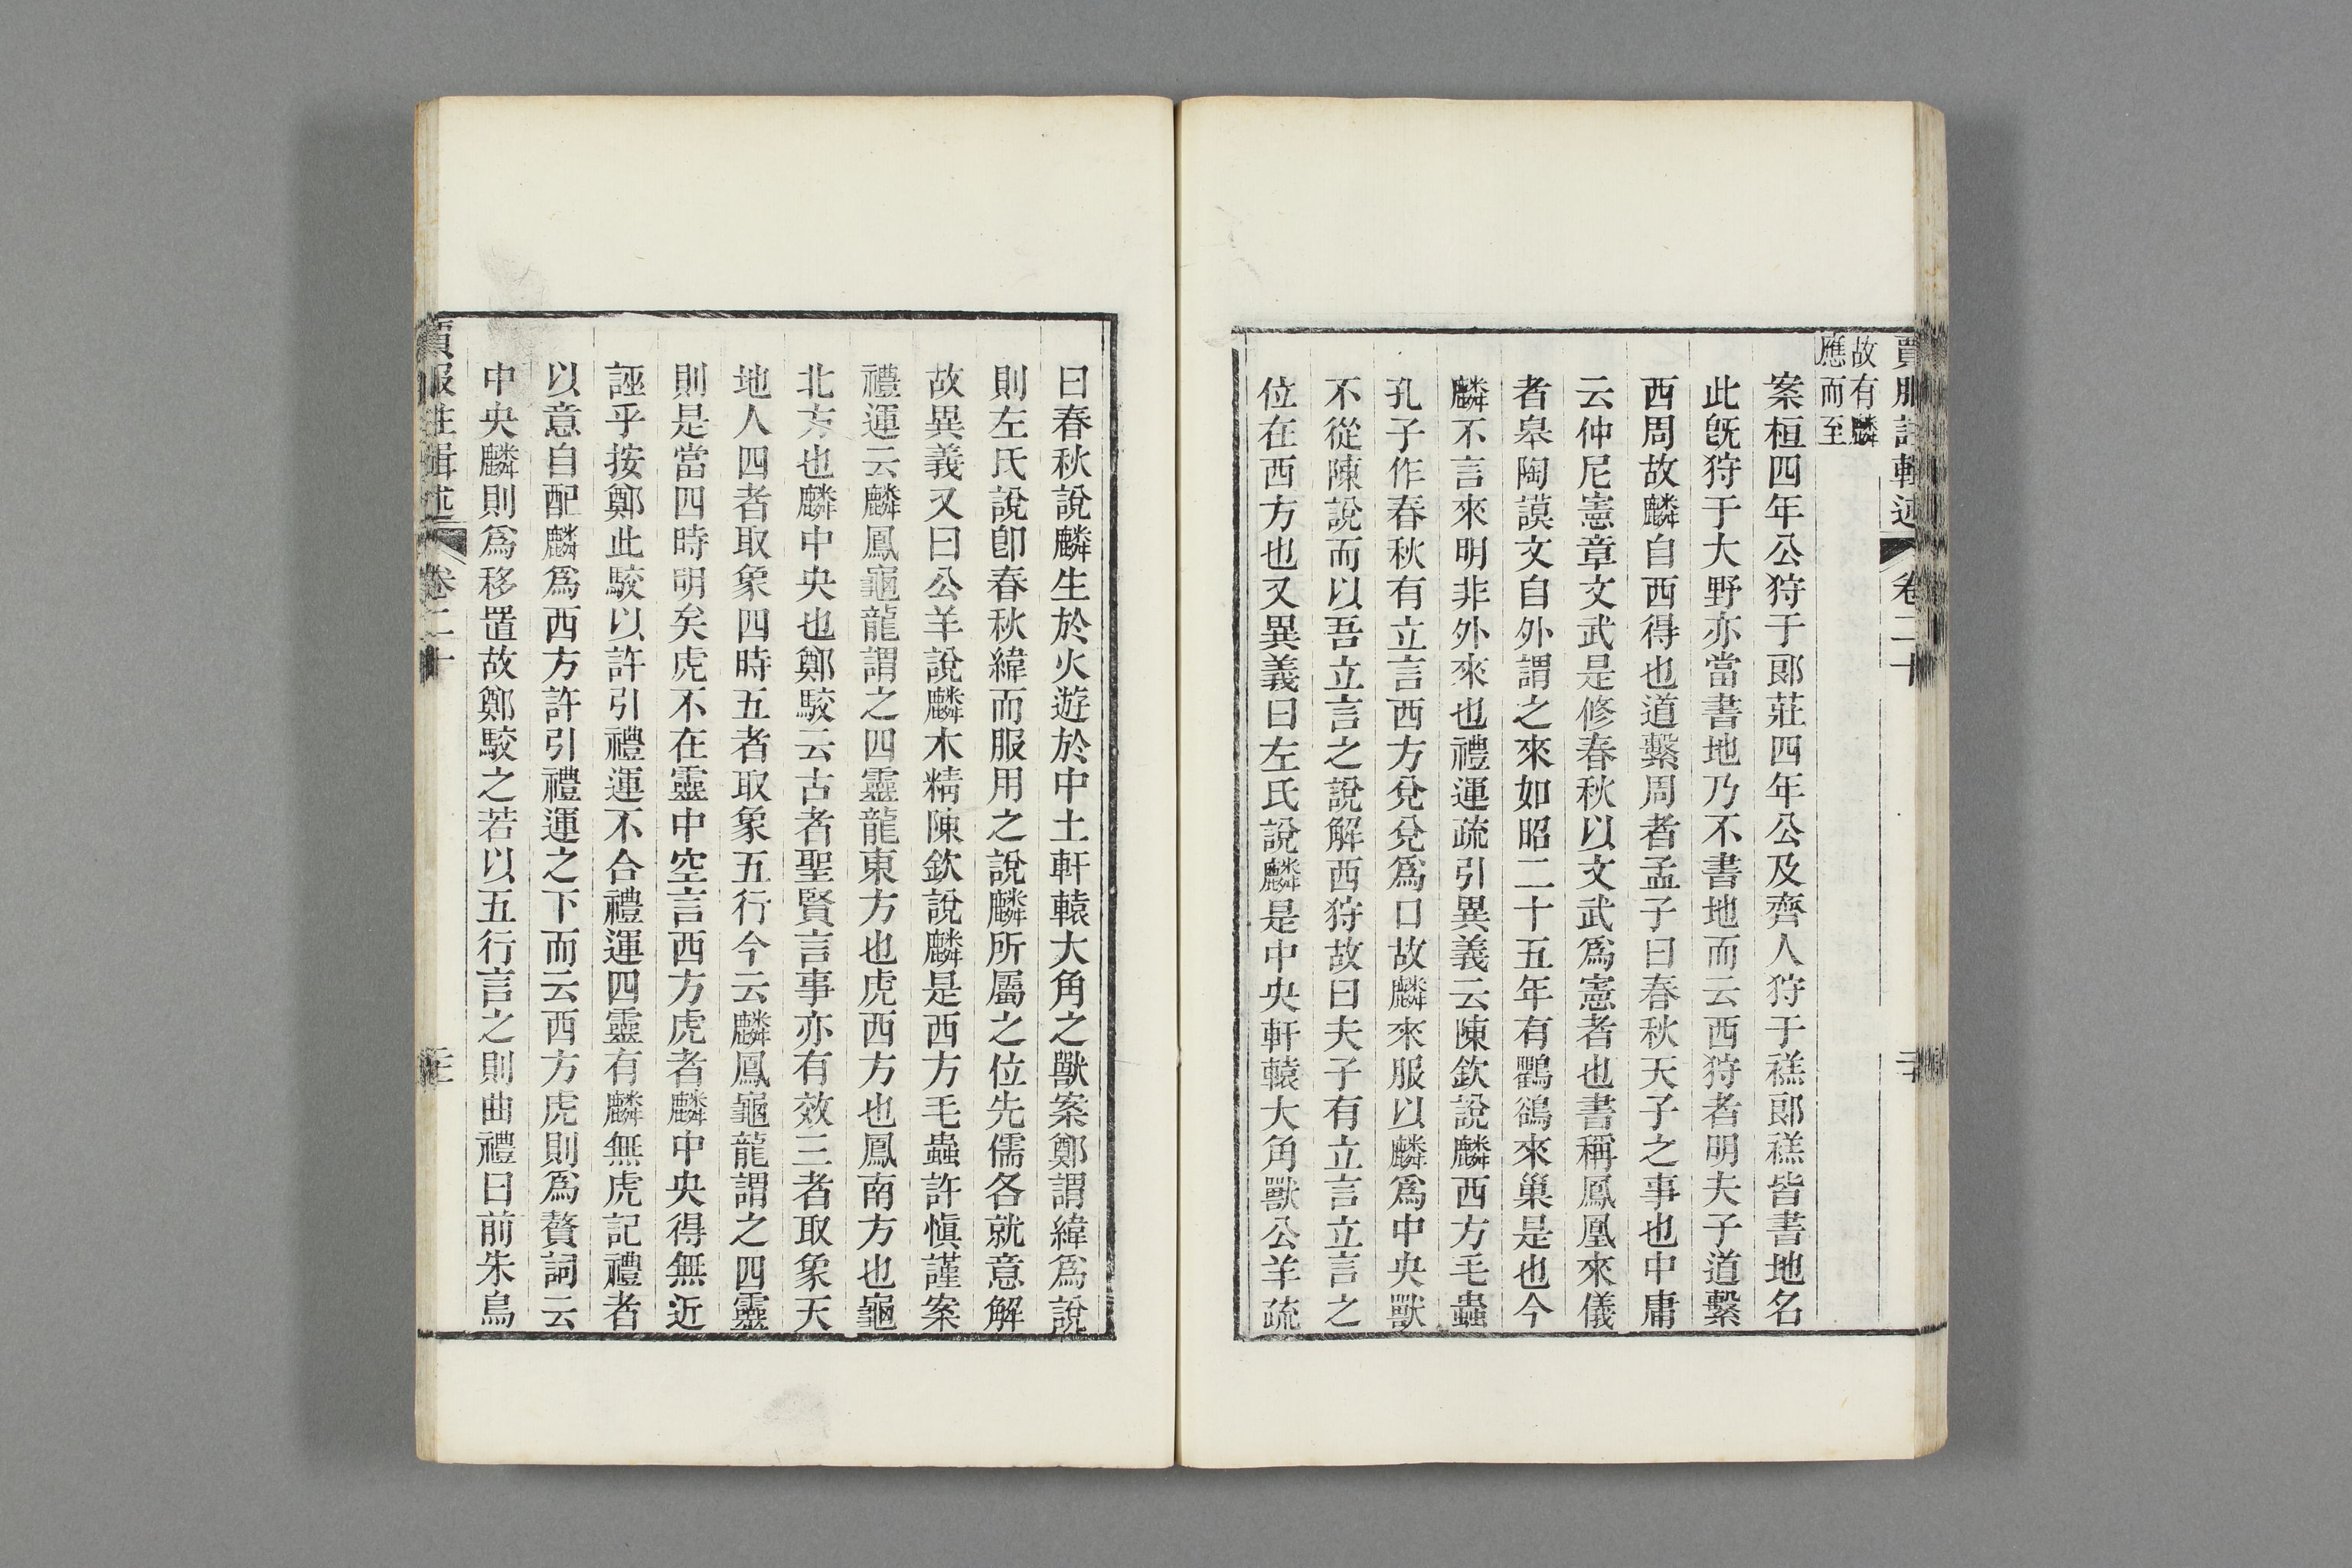 賈服註輯述 卷二十
故有麟
應而至
案桓四年公狩于郎莊四年公及齊人狩于禚郎禚皆書地名
此旣狩于大野亦當書地乃不書地而云西狩者明夫子道繫
西周故麟自西得也道繫周者孟子曰春秋天子之事也中庸
云仲尼憲章文武是修春秋以文武爲憲者也書稱鳳凰來儀
者皋陶謨文自外謂之來如昭二十五年有鸜鵒來巢是也今
麟不言來明非外來也禮運疏引異義云陳欽說麟西方毛蟲
孔子作春秋有立言西方兌兌爲口故麟來服以麟爲中央獸
不從陳說而以吾立言之說解西狩故曰夫子有立言立言之
位在西方也又異義曰左氏說麟是中央軒轅大角獸公羊疏
曰春秋說麟生於火遊於中土軒轅大角之獸案鄭謂緯爲說
則左氏說卽春秋緯而服用之說麟所屬之位先儒各就意解
故異義又曰公羊說麟木精陳欽說麟是西方毛蟲許愼謹案
禮運云麟鳳龜龍謂之四靈龍東方也虎西方也鳳南方也龜
北方也麟中央也鄭駮云古者聖賢言事亦有效三者取象天
地人四者取象四時五者取象五行今云麟鳳龜龍謂之四靈
則是當四時明矣虎不在靈中空言西方虎者麟中央得無近
誣乎按鄭此駮以許引禮運不合禮運四靈有麟無虎記禮者
以意自配麟爲西方許引禮運之下而云西方虎則爲贅詞云
中央麟則爲移置故鄭駮之若以五行言之則曲禮曰前朱鳥
賈服註輯述 卷二十